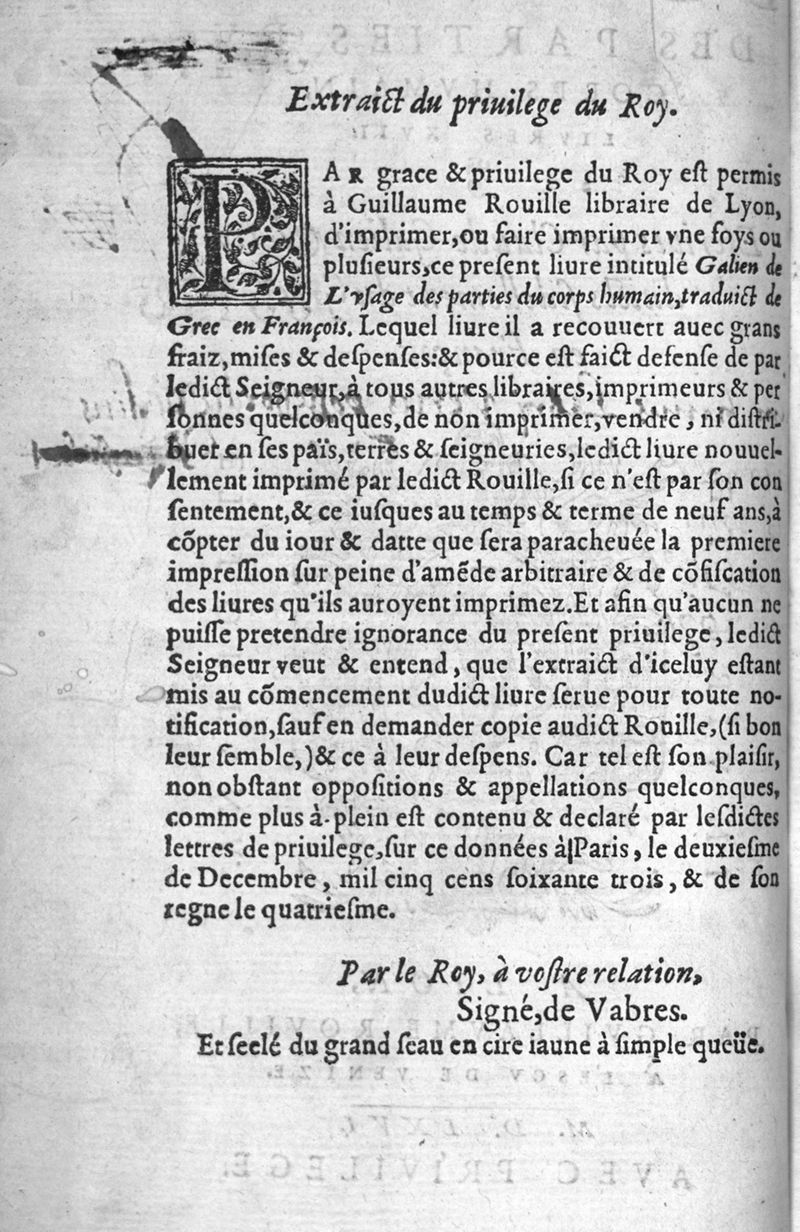 Extraict du priuilege du Roy.
PAR grace & priuilege du Roy eſt permis
à Guillaume Rouille libraire de Lyon,
d'imprimer,ou faire imprimer vne foys ou
pluſieurs,ce preſent liure intitulé Galien de
L'vſage des parties du corps humain,traduict de
Grec en François. Lequel liure il a recouuert auec grans
fraiz,miſes & deſpenſes:& pource eſt faict defenſe de par
ledict Seigneur,à tous autres libraires,imprimeurs & per
ſonnes quelconques,de non imprimer,vendre, ni diſtri-
buer en ſes païs,terres & ſeigneuries,ledict liure nouuel-
lement imprimé par ledict Rouille,ſi ce n'eſt par ſon con
ſentement,& ce iuſques au temps & terme de neuf ans,à
cõpter du iour & datte que ſera paracheuée la premiere
impreſſion ſur peine d'amẽde arbitraire & de cõfiſcation
des liures qu'ils auroyent imprimez.Et afin qu'aucun ne
puiſſe pretendre ignorance du preſent priuilege, ledict
Seigneur veut & entend, que l'extraict d'iceluy eſtant
mis au cõmencement dudict liure ſerue pour toute no-
tification,ſauf en demander copie audict Rouille,(ſi bon
leur ſemble,)& ce à leur deſpens. Car tel eſt ſon plaiſir,
nonobſtant oppoſitions & appellations quelconques,
comme plus à plein eſt contenu & declaré par leſdictes
lettres de priuilege,ſur ce données à Paris, le deuxieſme
de Decembre, mil cinq cens ſoixante trois, & de ſon
regne le quatrieſme.
Par le Roy, à voſtre relation,
Signé,de Vabres.
Et ſeelé du grand ſeau en cire iaune à ſimple queüe.